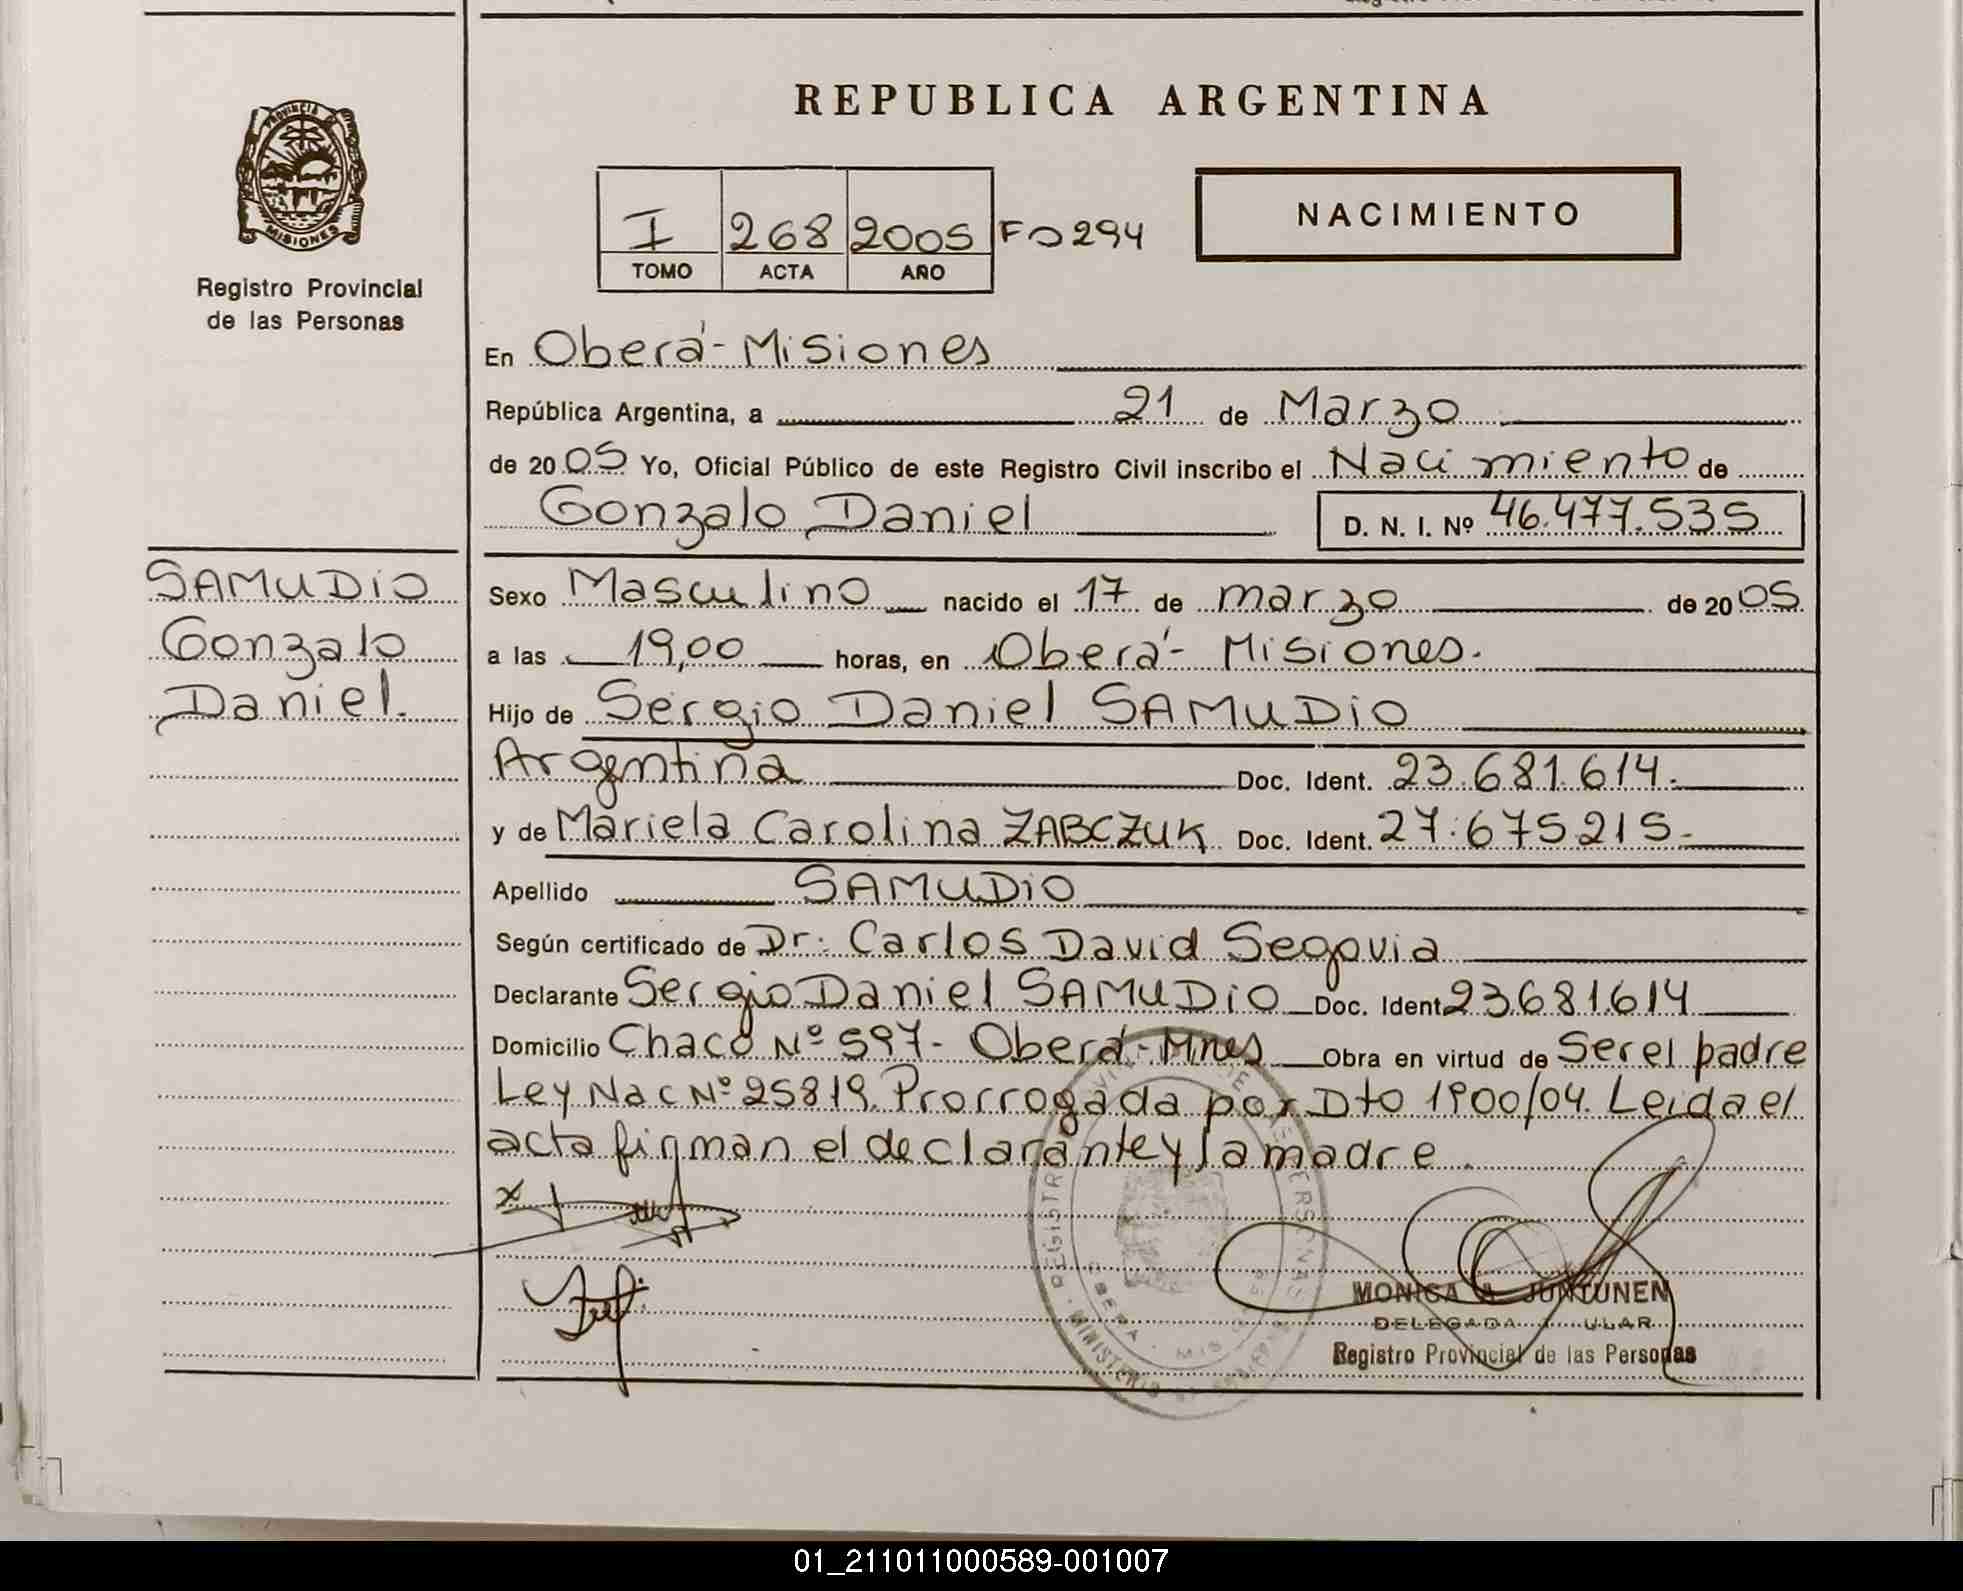 REPUBLICA ARGENTINA
PROVINCIA DE
MISIONES
Registro Provincial
de las Personas
I 268 2005 Fo 294
TOMO ACTA AÑO
NACIMIENTO
En Oberá - Misiones
República Argentina, a 21 de Marzo
de 20 05 Yo, Oficial Público de este Registro Civil inscribo el Nacimiento de
Gonzalo Daniel D. N. I. Nº 46.477.535
SAMUDIO
Gonzalo
Daniel.
Sexo Masculino nacido el 17 de marzo de 20 05
a las 19,00 horas, en Oberá - Misiones.
Hijo de Sergio Daniel SAMUDIO
Argentina Doc. Ident. 23.681.614.
y de Mariela Carolina ZABCZUK Doc. Ident. 27.675215-
Apellido SAMUDIO
Según certificado de Dr: Carlos David Segovia
Declarante Sergio Daniel SAMUDIO Doc. Ident 23681614
Domicilio Chaco Nº 597- Oberá - Mnes Obra en virtud de Ser el padre
Ley Nac Nº 25819. Prorrogada por Dto 1900/04. Leida el
acta firman el declarante y la madre.
MONICA A. JUNTUNEN
DELEGADA TITULAR
Registro Provincial de las Personas
01_211011000589-001007